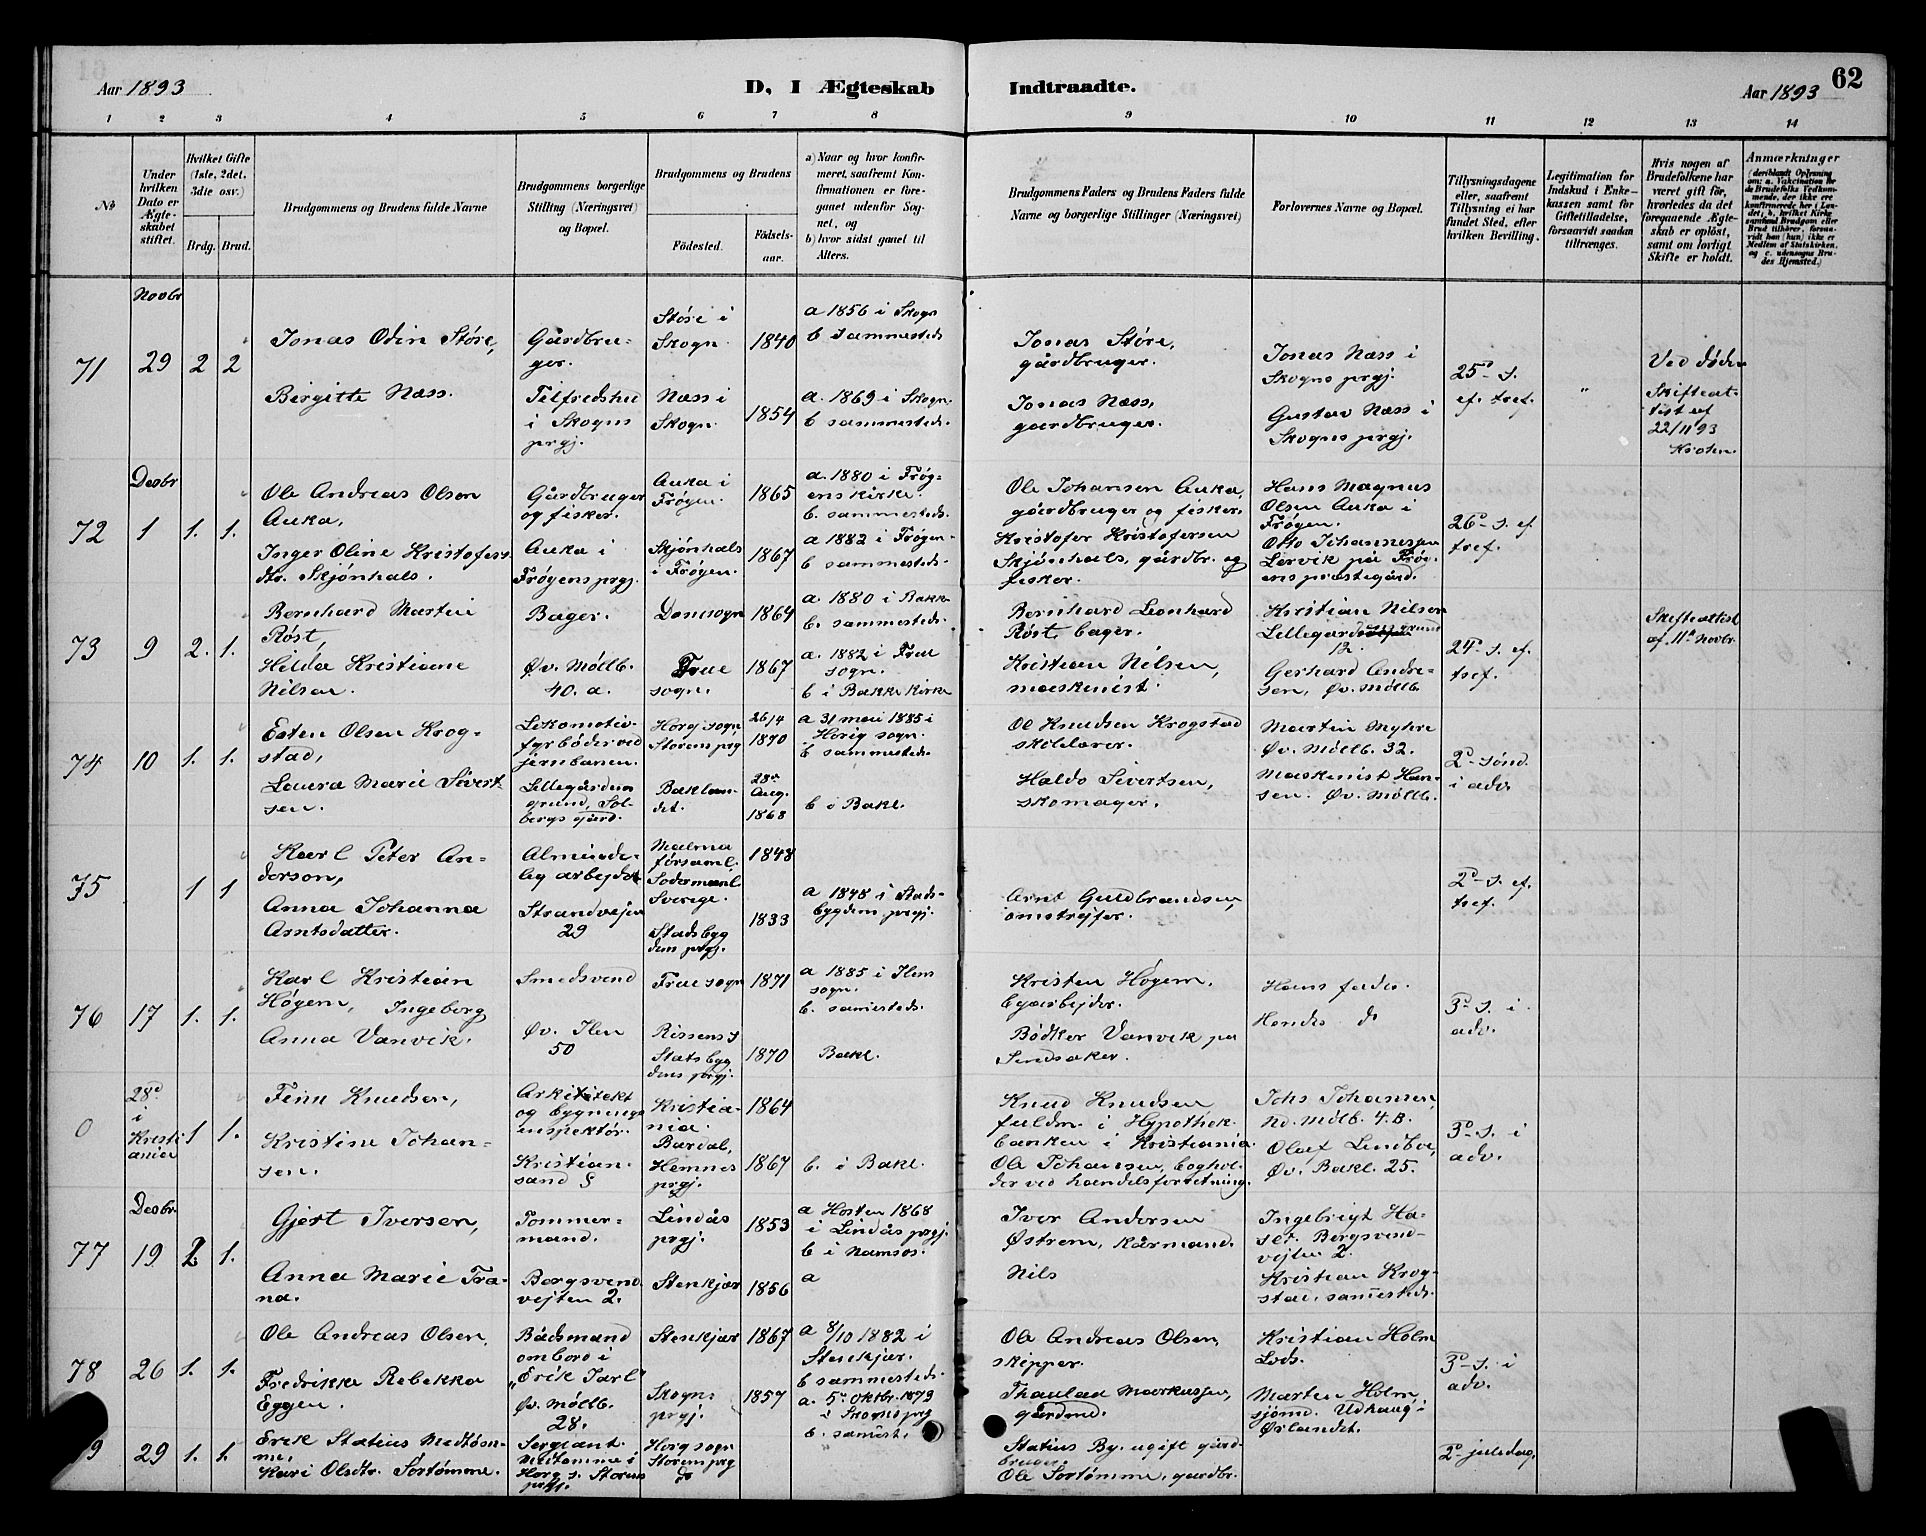 Aar 1893
D. I Ægteskab Indtraadte.
Aar 1893
62
1 2 3 4 5 6 7 8 9 10 11 12 13 14
No
Under hvilken Dato er Ægteskabet stiftet.
Hvilket Gifte (1ste, 2det, 3die osv.)
Brdg. Brud.
Brudgommens og Brudens fulde Navne
Brudgommens borgerlige Stilling (Næringsvei) og Bopæl.
Brudgommens og Brudens
Fødested.
Fødselsaar.
a) Naar og hvor konfirmeret, saafremt Konfirmationen er foregaaet udenfor Sognet, og
b) hvor sidst gaaet til Alters.
Brudgommens Faders og Brudens Faders fulde Navne og borgerlige Stillinger (Næringsvei)
Forlovernes Navne og Bopæl.
Tillysningsdagene eller, saafremt Tillysning ei har fundet Sted, efter hvilken Bevilling.
Legitimation for Indskud i Enkekassen samt for Giftetilladelse, forsaavidt saadan tiltrænges.
Hvis nogen af Brudefolkene har været gift før, hvorledes da det foregaaende Ægteskab er opløst, samt om lovligt Skifte er holdt.
Anmærkninger
71
Novbr
29
2 2
Jonas Odin Støre,
Birgitte Næss.
Gårdbruger.
Tilfredshed
i Skogns
prgj.
Støre i
Skogn.
1840
Næss i
Skogn.
1854
a 1856 i Skogn
b sammesteds
a. 1869 i Skogn.
b sammesteds.
Jonas Støre,
gårdbruger.
Jonas Næss,
gårdbruger.
Jonas Næss i
Skogns prgj.
Gustav Næss i
Skogns prgj.
25d s.
ef. tref.
"
Ved døden
Skifteattest af
22/11 93
72
Desbr
1
1. 1.
Ole Andreas Olsen
Auka,
Inger Oline Kristofersdtr. Skjønhals.
Gårdbruger
og fisker.
Auka i
Frøyens prgj.
Auka i
Frøyen.
1865
Skjønhals
i Frøyen.
1867
a. 1880 i Frøyens kirke.
b. sammesteds.
a 1882 i Frøyen.
b sammesteds.
Ole Johansen Auka,
gårdbruger og fisker.
Kristofer Kristofersen
Skjønhals, gårdbr. og
fisker.
Hans Magnus
Olsen Auka i
Frøyen.
Otto Johannessen
Lervik på Frøyens præstegård.
26d s. ef.
tref.
73
9
2. 1.
Bernhard Martin
Røst,
Hilda Kristiane
Nilsen.
Bager.
Øv. Møllb.
40. a.
Domsogn
1864
Frue
sogn.
1867
a. 1880 i Bakke
b. sammesteds.
a. 1882 i Frue
sogn.
b i Bakke kirke
Bernhard Leonhard
Røst, bager.
Kristian Nilsen,
maskinist.
Kristian Nilsen
Lillegårds grund
12.
Gerhard Andresen, Øv. Møllb.
24d s. ef.
tref.
Skifteattest
af 11d Novbr.
74
10
1. 1.
Esten Olsen Krogstad,
Laura Marie Sivertsen.
Lokomotivfyrbøder ved
jernbanen.
Lillegårdens
grund, Solbergs gård.
Horg sogn
Størens prgj
26/4
1870
Baklandet.
28de
Aug.
1868
a 31 mai 1885 i
Horg sogn.
b sammesteds.
b i Bakl.
Ol Knudsen Krogstad
skolelærer.
Haldo Sivertsen,
skomager.
Martin Myhre
Øv. Møllb. 32.
Maskinist Hansen. Øv. Møllb.
2d sønd.
i adv.
75
1 1
Karl Peter Anderson,
Anna Johanna
Arntsdatter.
Almindelig arbejder
Strandvejen
29
Malma
forsaml.
Sodermanl.
Sverige.
1848
Stadsbygdens prgj.
1833
a 1848 i Stadsbygdens prgj.
Arnt Guldbrandsen,
omstrejfer.
2d s. ef.
tref.
76
17
1. 1.
Karl Kristian
Høgem, Ingeborg
Anna Vanvik.
Smedsvend
Øv. Ilen
50
Frue sogn
1871
Rissens s
Statsbygdens prgj.
1870
a 1885 i Ilens
sogn.
b. samesteds.
Bakl.
Kristen Høgem,
byarbejder.
Bødker Vanvik på
Sundsaker.
Hans fader.
Hendes do
3d s. i
adv.
0
28d
i
Kristiania
1 1.
Finn Knudsen,
Kristine Johansen.
Arkitekt
og bygningsinspektør.
Kristiansand S
Kristiania.
1864
Bardal,
Hemnes
prgj.
1867
b. i Bakl.
Knud Knudsen
fuldm. i Hypothekbanken i Kristiania.
Ole Johansen, bogholder ved handelsforretning.
Johs Johansen,
Nd. Møllb. 4. B.
Olaf Lindboe,
Øv. Bakl. 25.
3d s. i
adv.
77
Desbr.
19
2 1.
Gjert Iversen,
Anna Marie Trana.
Tømmermand.
Borgsvendvejten 2.
Lindås
prgj.
1853
Stenkjær
1856
a Høsten 1868
i Lindås prgj.
b i Namsos.
a
Iver Andersen
Østrem, kårmand.
Nils
Ingebrigt Hasel. Borgsvendvejten 2.
Kristian Krogstad, samesteds.
78
26
1. 1.
Ole Andreas Olsen,
Fredrikke Rebekka
Eggen.
Bådsmand
ombord i
"Erik Jarl"
Øv. Møllb.
28.
Stenkjær
1867
Skogns
prgj.
1857
a 8/10 1882 i
Stenkjær.
b sammesteds.
a. 5d oktbr. 1879
i Skogns prgj
b. samest.
Ole Andreas Olsen,
skipper.
Markussen,
gårdmd.
Kristian Holm
Lods.
Marten Holm
sjømd. Udhaug i
Ørlandet.
3d s. i
adv.
9
29
1. 1.
Erik Statius Midtømme,
Kari Olsdtr. Sørtømme.
Sergeant
Midtømme i
Horg s. Størens
prgj.
Horg sogn
Størens prgj
do
Statius By, ugift gårdbruger.
Ole Sørtømme, gårdbr.
2d juledag.